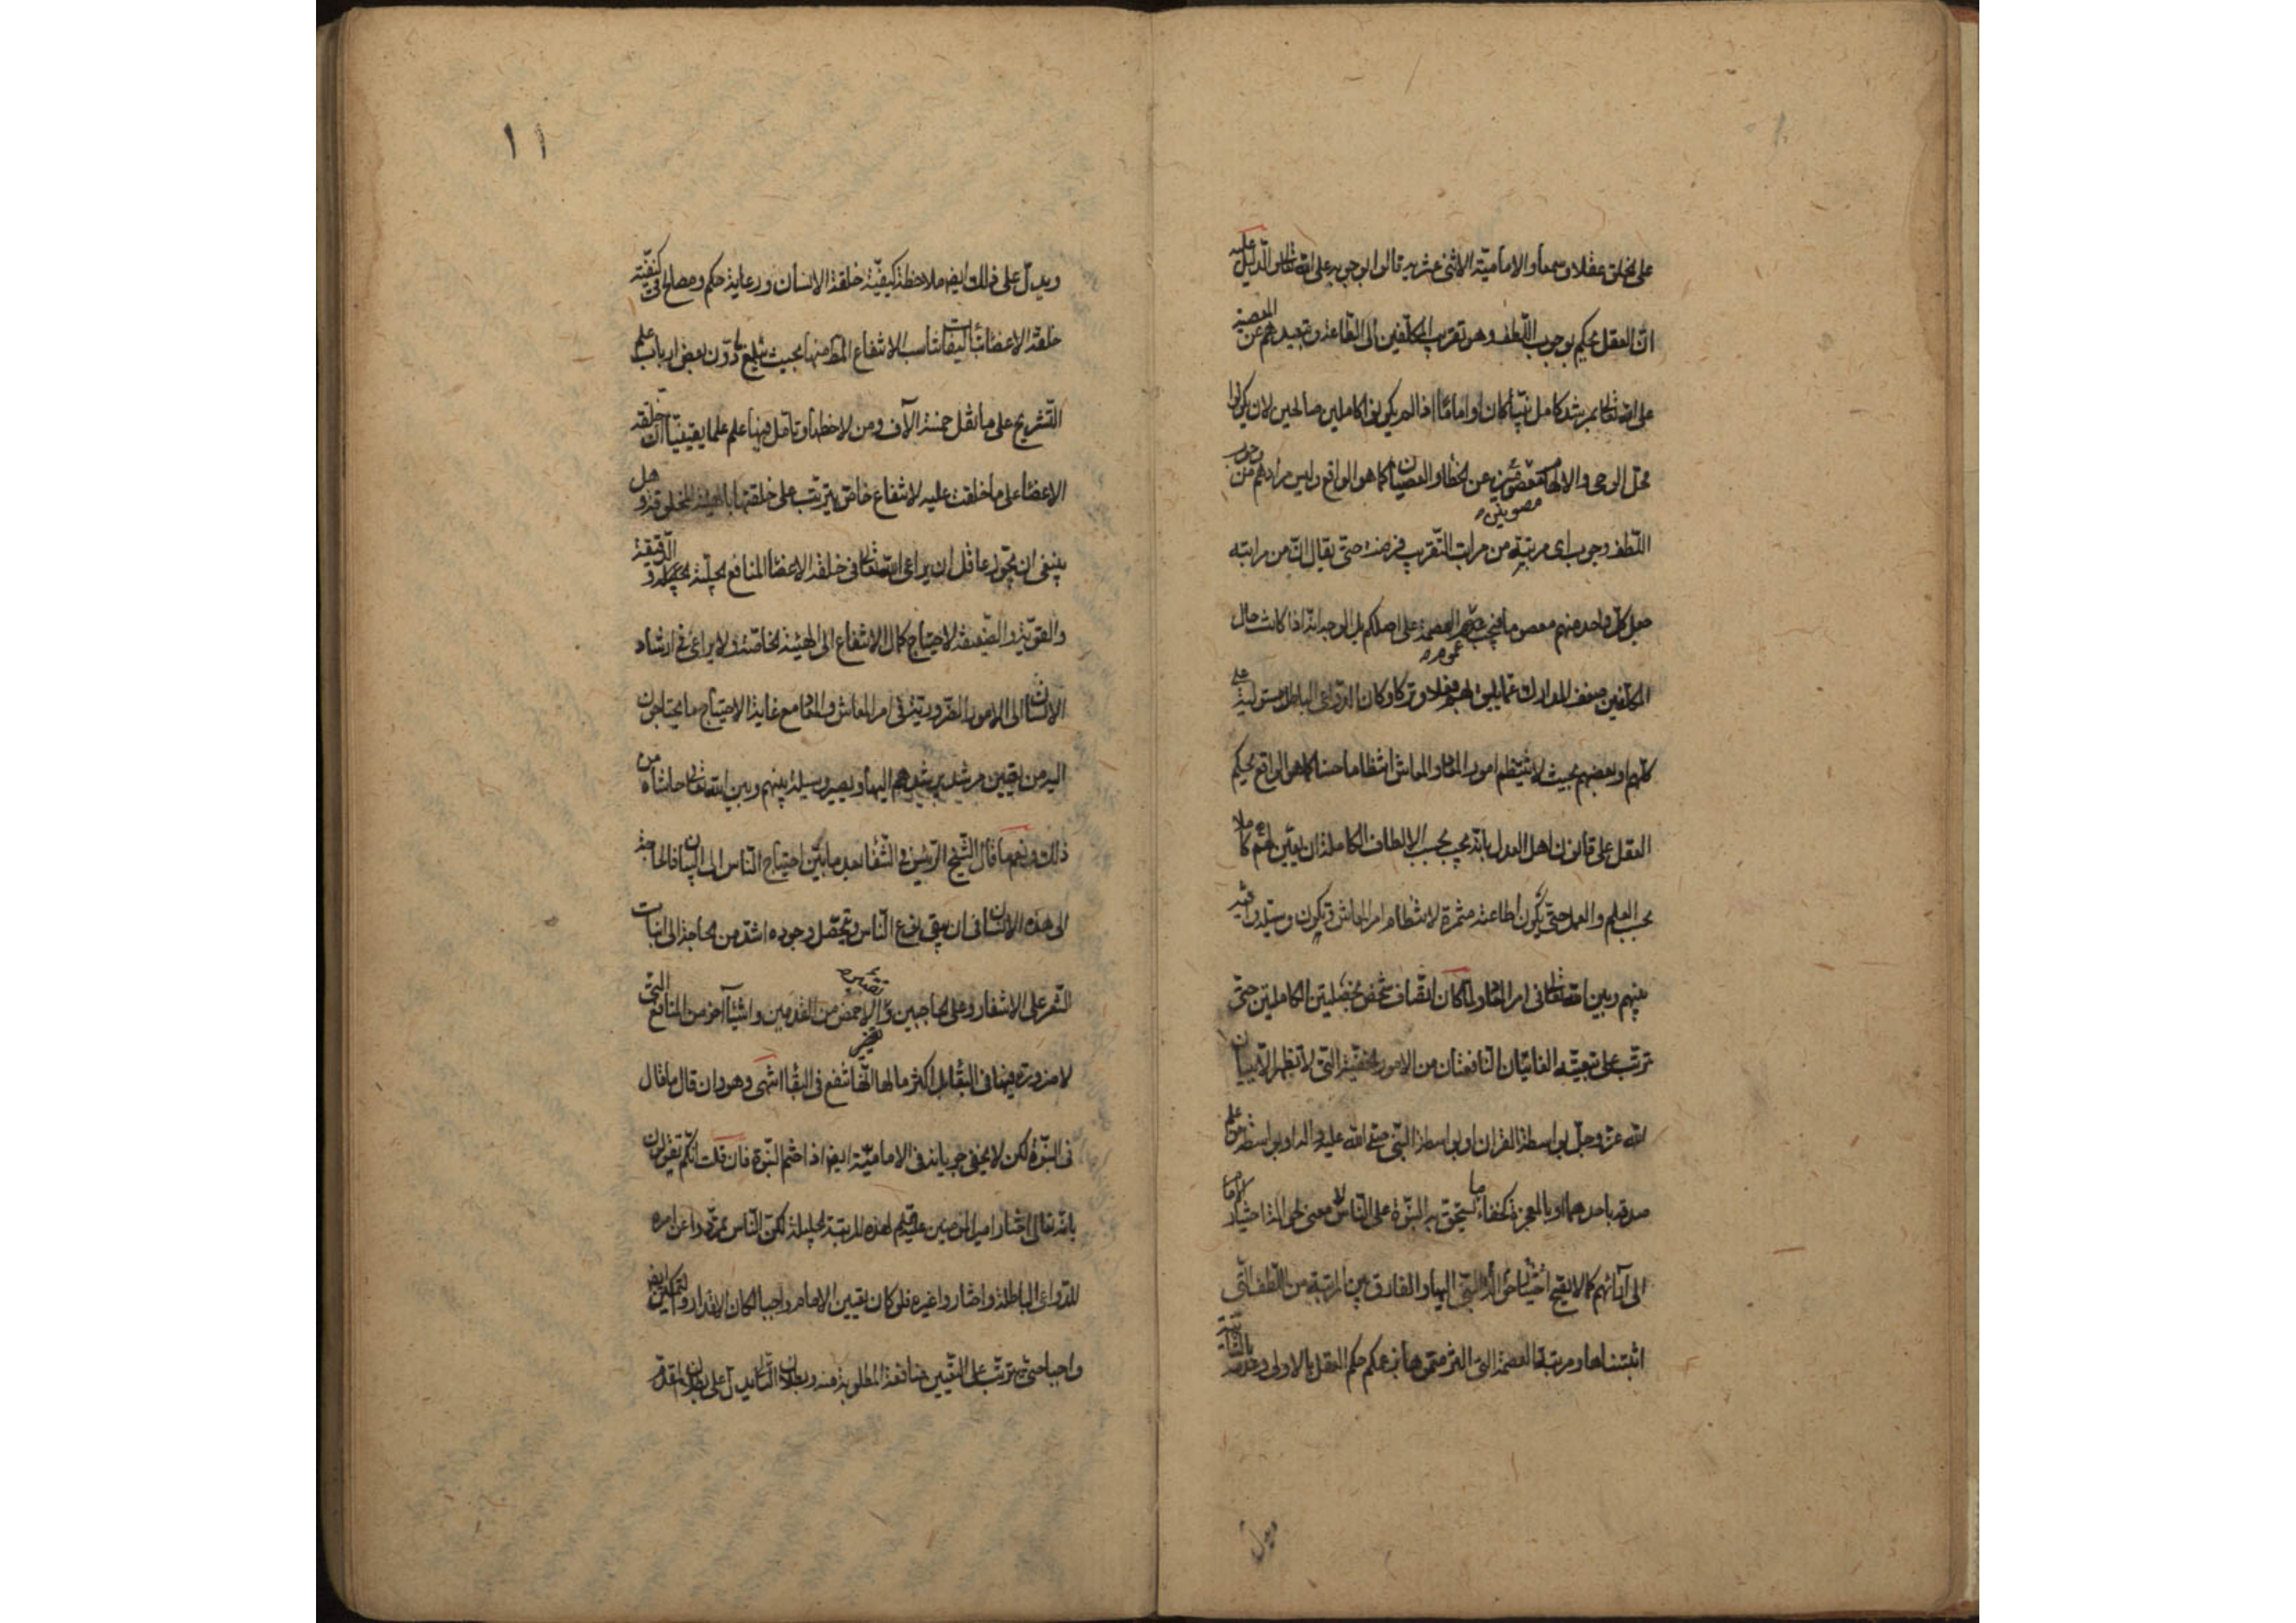 على الخلق عقلا وسمعا والامامية الاثنى عشرية قالوا بوجوبه على الله تعالى والدليل عليه
ان العقل يحكم بوجوب اللطف وهو تقريب المكلفين الى الطاعة وتبعيدهم عن المعصية
على الله تعالى بمرشد كامل نبيا كان او اماما اذا لم يكونوا كاملين صالحين لان يكونوا
محل الوحى والالهام معصومين عن الخطا والعصيان كما هو الواقع وليس مرادهم من وجوب
مصونين
اللطف وجوب اى مرتبة من مراتب التقريب فرضت حتى يقال ان من مراتبه
جعل كل واحد منهم معصوما فيجب العصمة على اصلكم بل الوجه انه اذا كانت حال
عموم
المكلفين ضعف المدارك عما يليق بهم فعلا وتركا وكان الدواعى الباطلة مستولية على
كلهم او بعضهم بحيث لا ينتظم امور المعاد والمعاش انتظاما حسنا كما هو الواقع يحكم
العقل على قانون اهل العدل بانه يجب بحسب الالطاف الكاملة ان يعين لهم كاملا
بحسب العلم والعمل حتى يكون اطاعته مثمرة لانتظام امر المعاش ويكون وسيلة
بينهم وبين الله تعالى فى امر المعاد ولما كان اتصاف شخص بخصلتين الكاملتين حتى
ترتب على تعيينه الغايتان النافعتان من الامور الخفية التى لا تظهر الا ببيان
الله عز وجل بواسطة القران او بواسطة النبى صلى الله عليه واله او بواسطة من علم
صدقه باحدهما او بالمعجزة كخفاء ما يتحقق به النبوة على الناس لا معنى لحوالة اختيار الامام
الى آرائهم كما لا يقبح اختيار النبى اليها والفارق بين المرتبة من اللطف التى
اثبتناها ومرتبة العصمة التى الزمتموها بزعمكم حكم العقل بالاولى وعدمه بالثانية
ويدل
١١
ويدل على ذلك ايضا ملاحظة كيفية خلقة الانسان ورعاية حكم ومصالح فى كيفية
خلقة الاعضا تاليفات تناسب الانتفاع المط منها بحيث تبلغ ما دون بعض ارباب علم
التشريح على ما نقل خمسة الآف ومن لاحظها وتامل فيها علم علما يقينيا ان خلقة
الاعضا على ما خلقت عليه لانتفاع خاص يترتب على خلقتها بالهيئة المخلوقة وهل
ينبغى ان يجوز عاقل ان يراعى الله تعالى فى خلقة الاعضا المنافع الجليلة الدقيقة
والقوية والضعيفة لاحتياج كمال الانتفاع الى الهيئة الخاصة ولا يراعى فى ارشاد
الانسان الى الامور الضرورية فى امر المعاش والمعاد مع غاية الاحتياج ما يحتاجون
اليه من تعيين مرشد يرشدهم اليها ويصير وسيلة بينهم وبين الله تعالى حاشاه من
ذلك ونعم ما قال الشيخ الرئيس فى الشفا بعد ما بين احتياج الناس الى البيان فالحاجة
الى هذا الانسان فى ان يبقى نوع الناس ويتحصل وجوده اشد من الحاجة الى انبات
الشعر على الاشفار وعلى الحاجبين وتقعير الاخمص من القدمين واشيا آخر من المنافع التى
لا ضرورة فيها فى البقا بل اكثر ما لها انها تنفع فى البقا انتهى وهو وان قال ما قال
فى النبوة لكن لا يخفى جريانه فى الامامية ايضا اذا ختم النبوة فان قلت انكم تقولون
بانه تعالى اختار امير المؤمنين عليه السلم لهذه المرتبة الجليلة لكن الناس تمردوا عن امره
للدواعى الباطلة واختاروا غيره فلو كان تعيين الامام واجبا لكان الاقدار والتمكين ايضا
واجبا حتى يترتب على التعيين منافعة المطلوبة منه وبطلان التالى يدل على بطلان المقدم